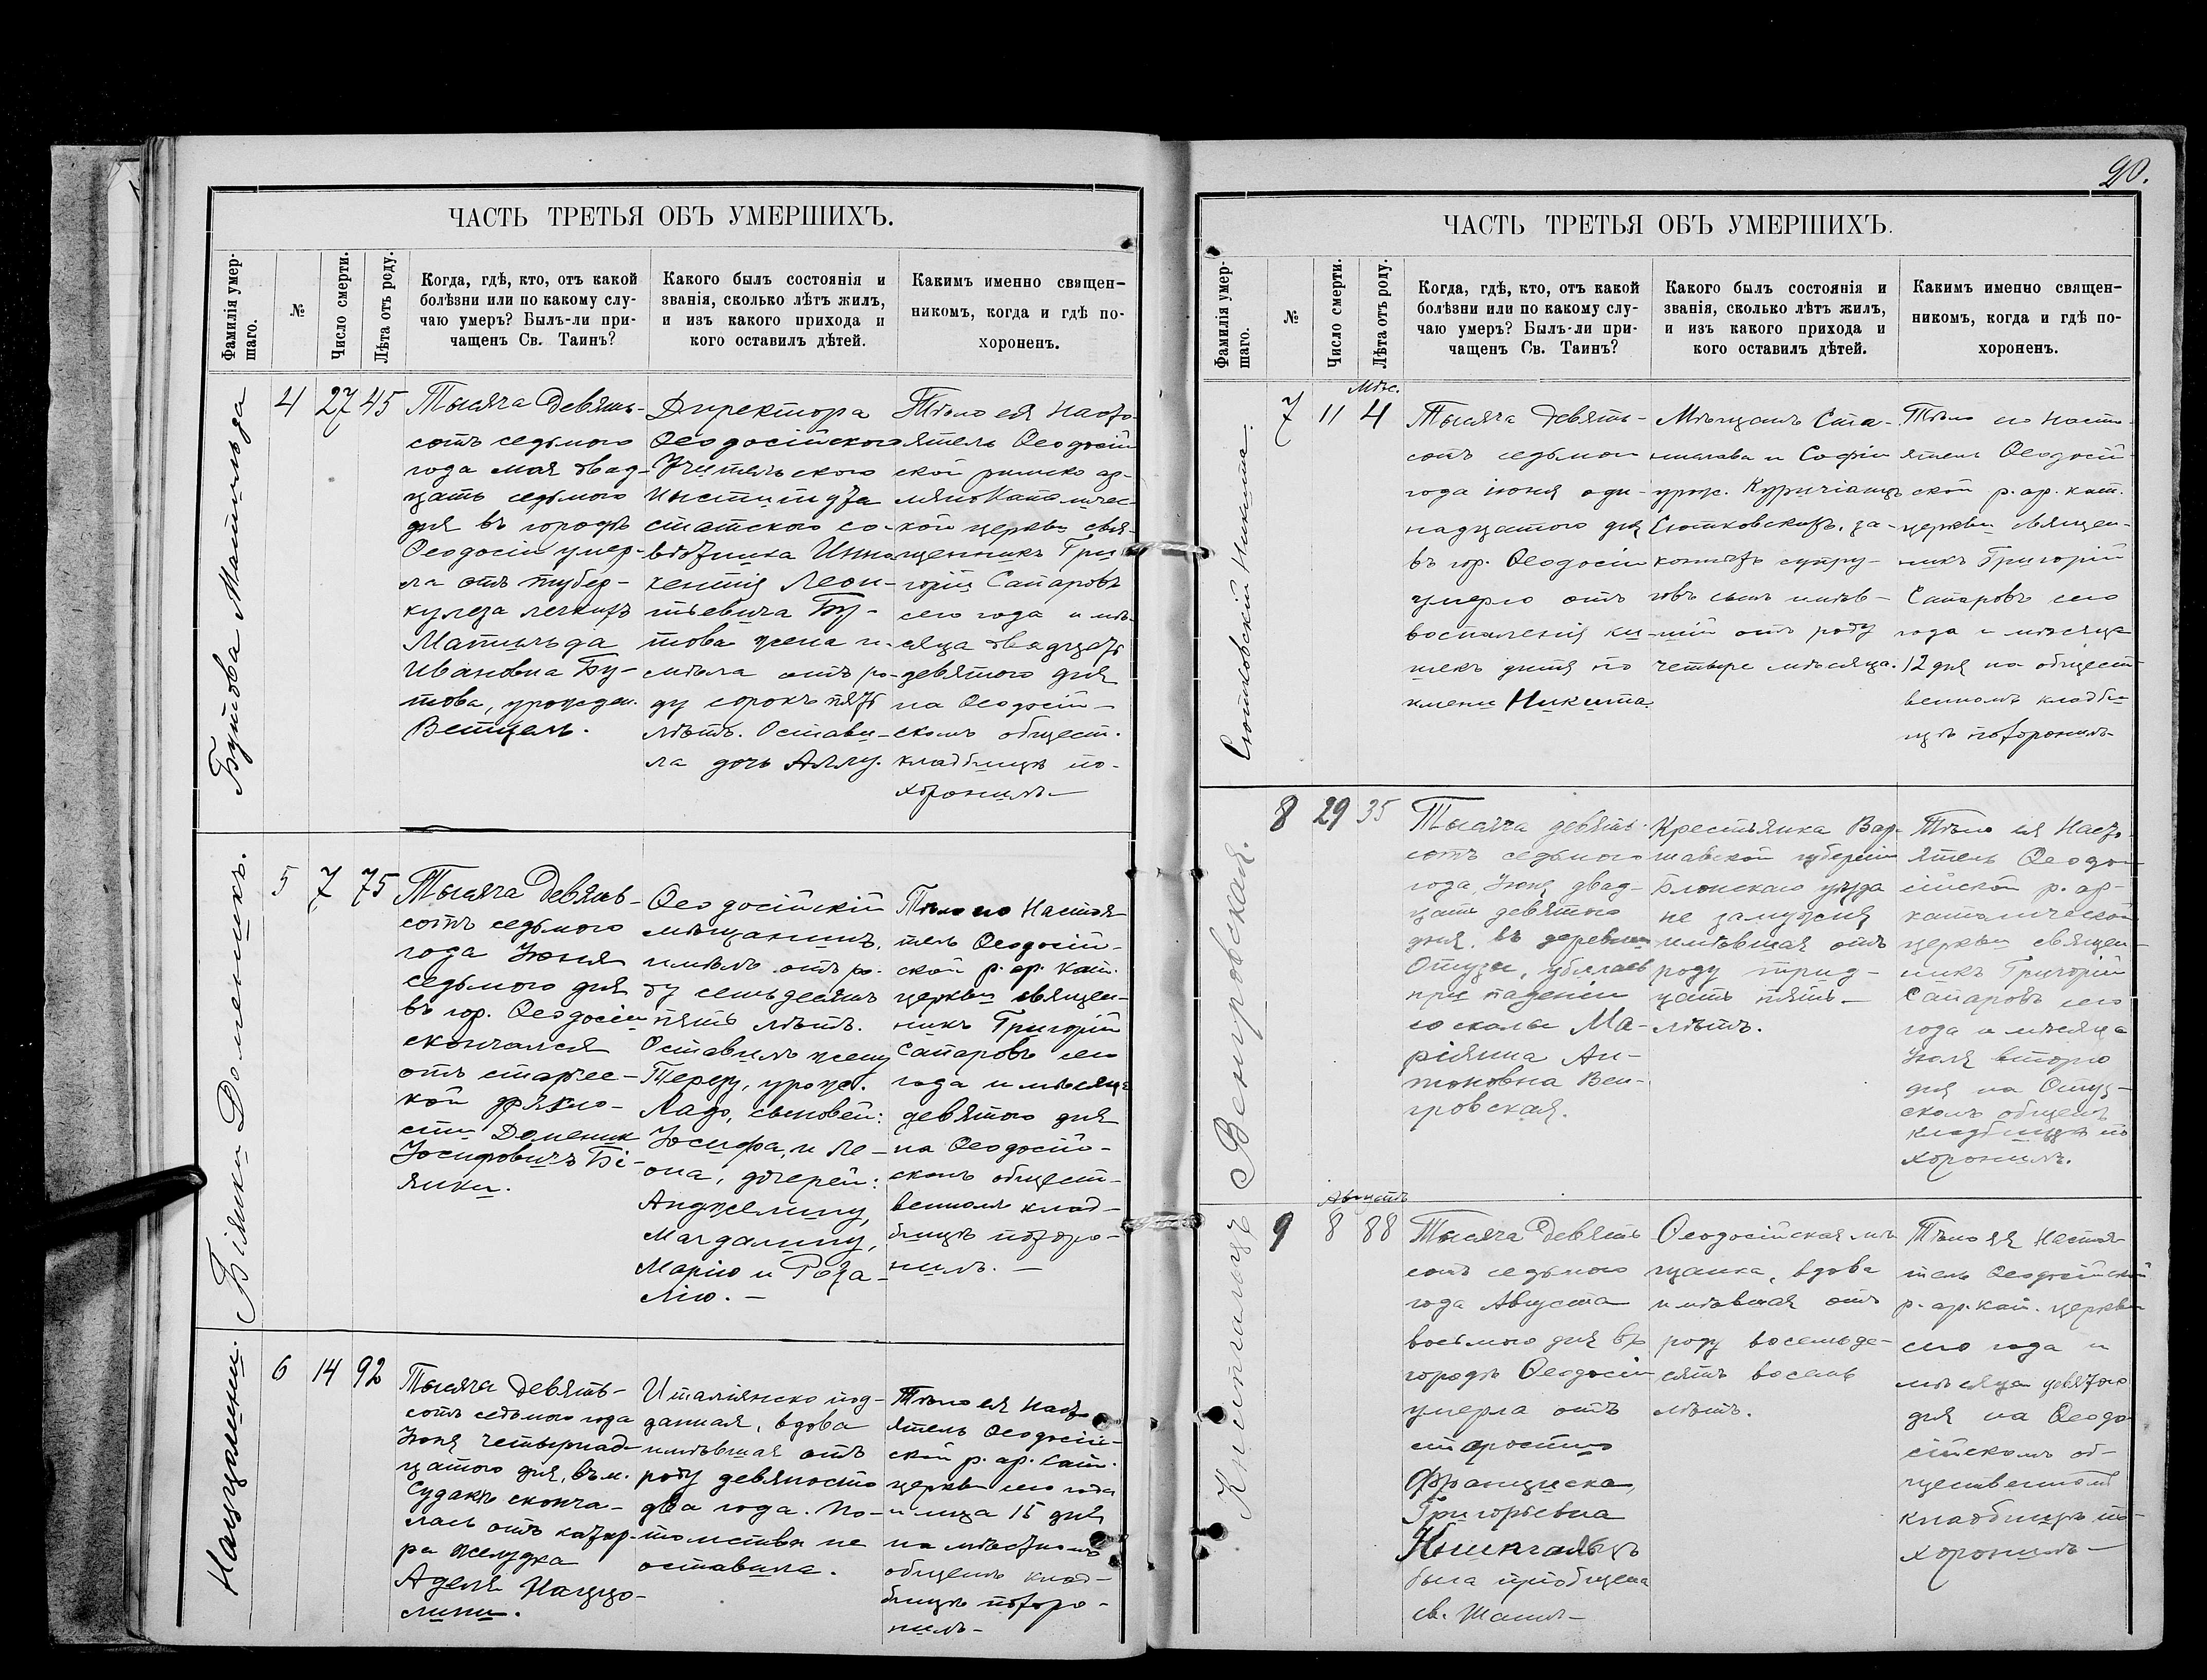 ЧАСТЬ ТРЕТЬЯ ОБЪ УМЕРШИХЪ.
Фамилія умер-
шаго.
№
Число смерти.
Лѣта отъ роду.
Когда, гдѣ, кто, отъ какой
болѣзни или по какому слу-
чаю умеръ? Былъ-ли при-
чащенъ Св. Таинъ?
Какого былъ состоянія и
званія, сколько лѣтъ жилъ,
и изъ какого прихода и
кого оставилъ дѣтей.
Какимъ именно священ-
никомъ, когда и гдѣ по-
хороненъ.
Бутова Матильда
4
27
45
Тысяча девять-
сотъ седьмого
года мая двад-
цать седьмого
дня въ городѣ
Ѳеодосіи умер-
ла отъ тубер-
кулеза легкихъ
Матильда
Ивановна Бу-
това, урожден.
Ветцель.
Директора
Ѳеодосійского
Учительского
Института
статского со-
вѣтника Инно
кентія Леон-
тьевича Бу-
това жена и-
мѣла отъ ро-
ду сорокъ пять
лѣтъ. Остави-
ла дочь Аллу.
Тѣло ея Насто-
ятель Ѳеодосій
ской римско ар-
мяно Католичес-
кой церкви свя-
щенникъ Гри
горій Сапаровъ
сего года и мѣ-
сяца двадцать
девятого дня
на Ѳеодосій-
скомъ общест.
кладбищѣ по-
хоронилъ—
Біянки Доменикъ.
5
7
75
Тысяча девять-
сотъ седьмого
года Іюня
седьмого дня
въ гор. Ѳеодосіи
скончался
отъ старчес-
кой дряхло-
сти Доменик
Іосифовичъ Бі-
янки.
Ѳеодосійскій
мѣщанинъ,
имѣлъ отъ ро-
ду семьдесятъ
пять лѣтъ.
Оставилъ жену
Терезу, урож.
Ладо, сыновей:
Іосифа, и Ле-
она, дочерей:
Анджелину,
Магдалину,
Марію и Роза-
лію.—
Тѣло его Настоя-
тель Ѳеодосій-
ской р. ар. кат.
церкви священ-
никъ Григорій
Сапаровъ сего
года и мѣсяца
девятого дня
на Ѳеодосій-
скомъ общест-
венномъ клад-
бищѣ похоро-
нилъ.—
6
14
92
Тысяча девять-
сотъ седьмого года
Іюня четырнад-
цатого дня, въ м.
Судакѣ сконча-
лась отъ катар-
ра желудка
Адель Наццо-
лини.
Итальянско под-
данная, вдова
имѣвшая отъ
роду девяносто
два года. По-
томства не
оставила.
Тѣло ея Насто
ятель Ѳеодосій-
ской р. ар. кат.
церкви сего года
и м-ца 15 дня
на мѣстномъ
общемъ клад-
бищѣ похоро-
нилъ—
20.
ЧАСТЬ ТРЕТЬЯ ОБЪ УМЕРШИХЪ.
Фамилія умер-
шаго.
№
Число смерти.
Лѣта отъ роду.
Когда, гдѣ, кто, отъ какой
болѣзни или по какому слу-
чаю умеръ? Былъ-ли при-
чащенъ Св. Таинъ?
Какого былъ состоянія и
званія, сколько лѣтъ жилъ,
и изъ какого прихода и
кого оставилъ дѣтей.
Какимъ именно священ-
никомъ, когда и гдѣ по-
хороненъ.
7
11
Мѣс.
4
Тысяча девять-
сотъ седьмого
года іюня оди-
надцатого дня
въ гор. Ѳеодосіи
умерло отъ
воспаленія ки-
шекъ дитя по
имени Никита.
Мѣщанъ Ста-
нислава и Софіи
урож.
за-
конныхъ супру-
говъ сынъ имѣв-
шій отъ роду
четыре мѣсяца.
Тѣло его насто-
ятель Ѳеодосій
ской р. ар. кат.
церкви священ-
никъ Григорій
Сапаровъ сего
года и мѣсяца
12 дня на общест
венномъ кладби
щѣ похоронилъ—
Венгровская.
8
29
35
Тысяча девять-
сотъ седьмого
года, Іюня двад-
цать девятого
дня, въ деревни
Отузы, убилась
при паденіи
со скалы Ма-
ріянна Ан-
тоновна Вен-
гровская.
Крестьянка Вар-
шавской губерніи
Блонскаго уѣзда
не замужняя
имѣвшая отъ
роду трид-
цать пять—
лѣтъ.
Тѣло ея Насто-
ятель Ѳеодо-
сійской р. ар-
католической
церкви священ-
никъ Григорій
Сапаровъ сего
года и мѣсяца
Іюля второго
дня на Отуз-
скомъ общемъ
кладбищѣ по
хоронилъ.
9
Августъ
8
88
Тысяча девять
сотъ седьмого
года Августа
восьмого дня въ
городѣ Ѳеодосіи
умерла отъ
старости
Франциска
Григорьевна
была пріобщена
св. Таинъ—
Ѳеодосійская мѣ
щанка, вдова
имѣвшая отъ
роду восемьде-
сятъ восемь
лѣтъ.
Тѣло ея Настоя-
тель Ѳеодосійской
р. ар. кат. церкви
сего года и
мѣсяца девятого
дня на Ѳеодо
сійскомъ об-
щественномъ
кладбищѣ по-
хоронилъ—